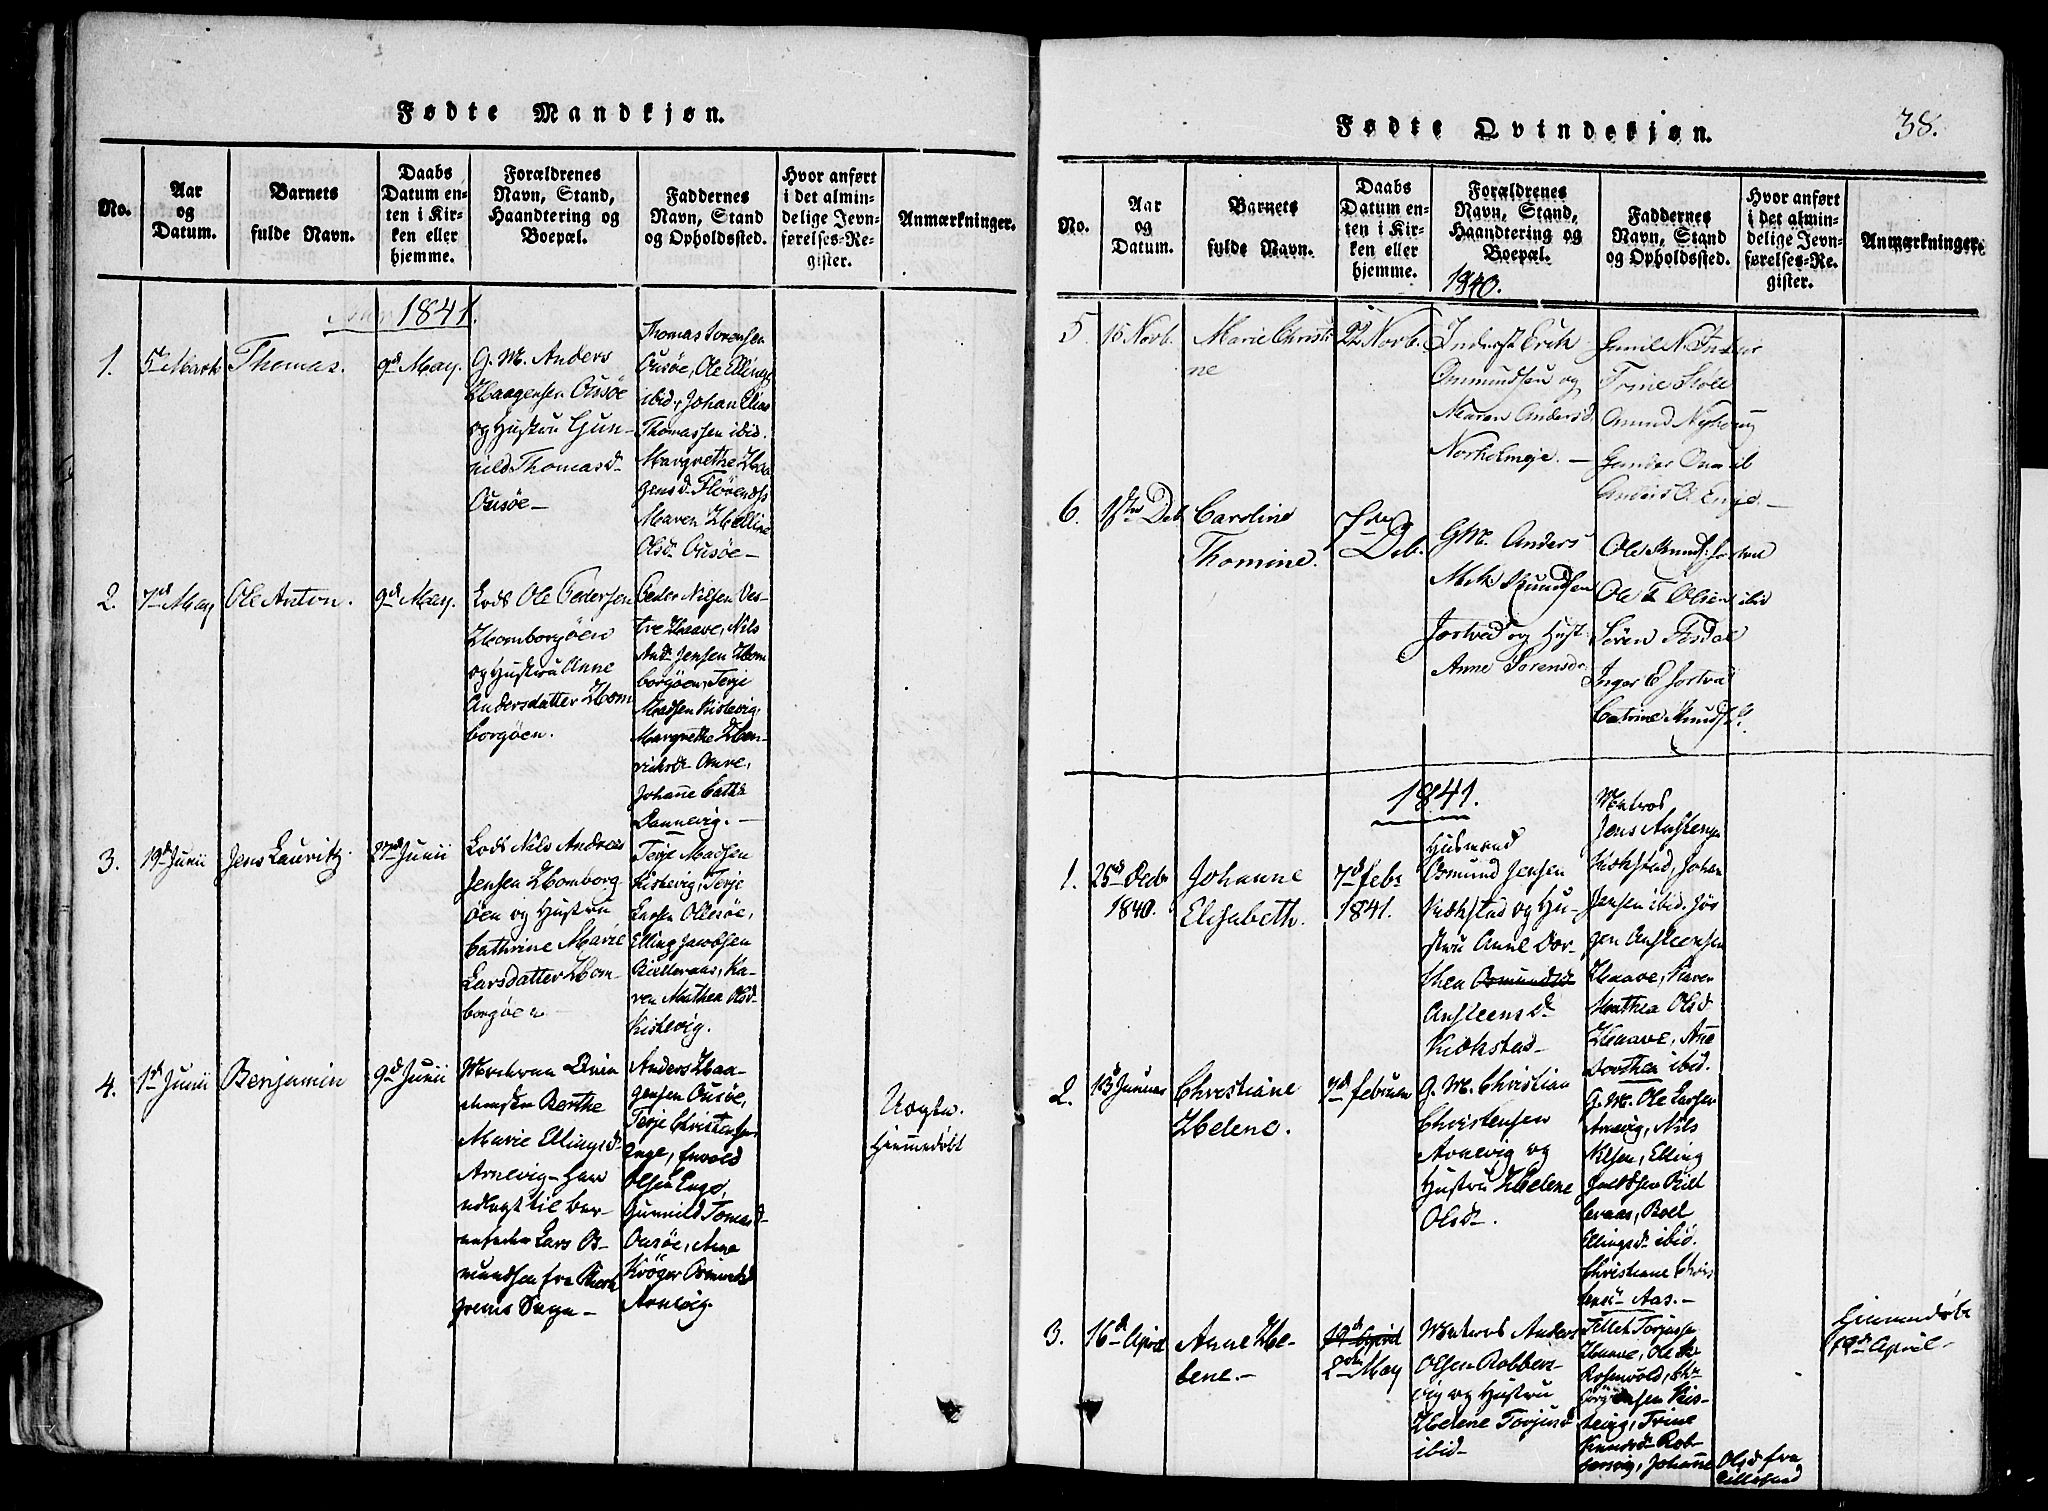 Fødte Mandkjøn.
No.
Aar
og
Datum.
Barnets
fulde Navn.
Daabs
Datum en-
ten i Kir-
ken eller
hjemme.
Forældrenes
Navn, Stand,
Haandtering og
Boepæl.
Faddernes
Navn, Stand
og Opholdssted.
Hvor anført
i det almin-
delige Jevn-
førelses-Re-
gister.
Anmærkninger.
1841.
1.
5te Marts
Thomas.
9d May.
G. M. Anders
Haagensen Ousöe
og Hustru Gun-
nild Thomasd.
Ousöe-
Thomas Sorensen
Ousöe, Ole Ellings
ibid, Johan Elias
Thomassen ibid.
Margrethe Haa
gensd.
Maren Helline
Olsd. Ousöe-
2.
7d May
Ole Anton.
9d May.
Lods Ole Pedersen
Homborgöen
og Hustru Anne
Andersdatter Hom
borgöen.
Peder Nilsen Ves-
tre Haave, Nils
Andr. Jensen Hom
borgöen, Terje
Madsen Kislevig,
Margrethe Hen-
richsd.
Johanne Cath.
Dannevig.-
3.
19d Junii
Jens Lauritz.
27d Junii
Lods Nils Andreas
Jensen Homborg
öen og Hustru
Cathrine Marie
Larsdatter Hom-
borgöen
Terje Madsen
Kislevig, Terje
Larsen Olesöe,
Elling Jacobsen
Bielleraas, Ka-
ren Mathea Olsd.
Kislevig.
4.
1d Junii
Benjamin
9d Junii
Berthe
Marie Ellingsd.
Arnevig-
udlagt til Bar-
nefader Lars O-
mundsen fra
Sogn-
Anders Haa-
gensen Ousöe,
Terje Christensen
Enge,
Olsen Enge,
Gunnild Tomasd.
Ousöe, Anne
Kröger
Arnevig.
Uægte.
Hiemmedöbt
Fødte Qvindekjøn.
38.
No.
Aar
og
Datum.
Barnets
fulde Navn.
Daabs
Datum en-
ten i Kir-
ken eller
hjemme.
Forældrenes
Navn, Stand,
Haandtering og
Boepæl.
Faddernes
Navn, Stand
og Opholdssted.
Hvor anført
i det almin-
delige Jevn-
førelses-Re-
gister.
Anmærkninger.
1840.
5.
15 Novb.
Marie Christi
ne
22 Novb.
Inderst Erik
Ommundsen og
Maren Andersd.
Norholmeje.-
Trine
Omund Nyborg
6.
1ste Deb.
Caroline
Thomine.
7de Deb.
GM. Anders
Knudsen
Jortved og Hust.
Anne Sorensdr.
Ole Knuds. Jortved
Ole T Olsen ibid
Sören
Inger E Jortved
Catrine Knudsd.
1841.
1.
25d Decbr
1840.
Johanne
Elisabeth.
7d Febr
1841.
Husmand
Osmund Jensen
og Hu-
stru Anne Dor-
thea Osmundsd.
Ansteensd.
Matros
Jens
Johan
Jensen ibid. Jör
gen Ansteensen
Haave, Karen
Mathea Olsd.
Haave, Ane
Dorthea ibid.
2.
13 Januar
Christiane
Helene.
7d Februar
G. M. Christian
Christensen
Arnevig og
Hustru Helene
Olsd.
G. M. Ole Larsen
Arnevig, Nils
Nilsen, Elling
Jacobsen Biel
leraas,
Ellingsd. ibid.
Christiane Chris
tensd. Aas.-
3.
16d April
Anne He-
lene.-
19d April
2den May
Matros Anders
Olsen Robbers-
vig og Hustru
Helene Torjusd.
ibid-
Tellef Torjussen
Haave, Ole
Rosenvold,
Kis-
levig, Trine
Knudsd. Rob-
bersvig, Johanne
Olsd. fra
Lillesand
Hiemmedöbt
19d April-